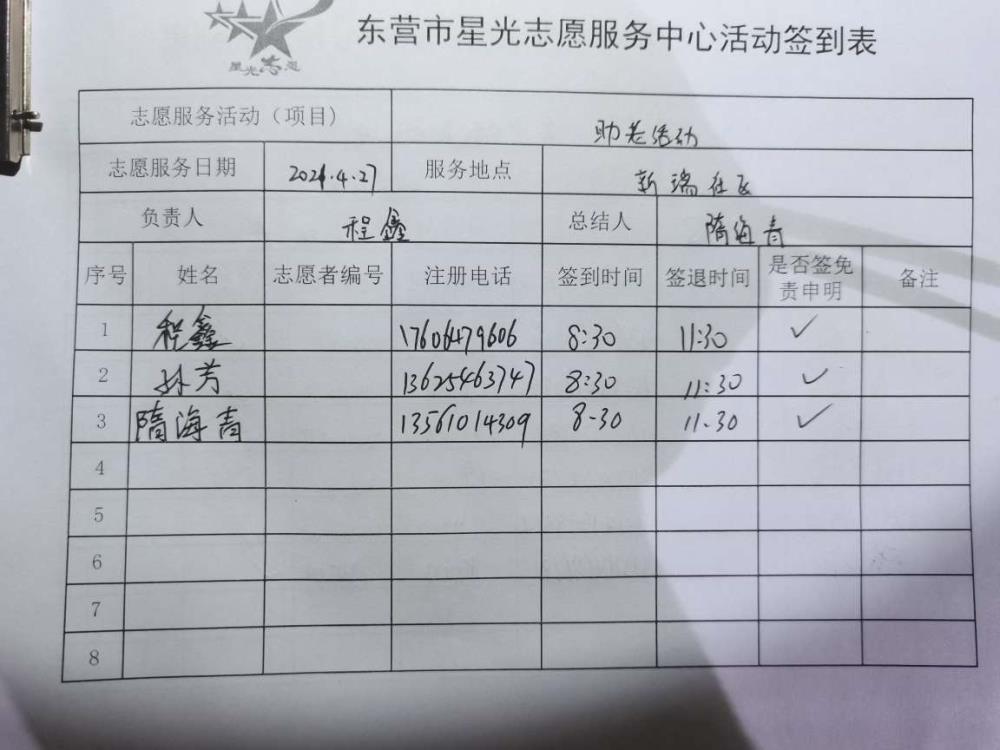 星光志愿
东营市星光志愿服务中心活动签到表
志愿服务活动（项目） 助老活动
志愿服务日期 2021.4.27 服务地点 新瑞社区
负责人 程鑫 总结人 隋海青
序号 姓名 志愿者编号 注册电话 签到时间 签退时间 是否签免责申明 备注
1 程鑫 17606479606 8:30 11:30 ✓
2 孙芳 13625463747 8:30 11:30 ✓
3 隋海青 13561014309 8-30 11.30 ✓
4
5
6
7
8